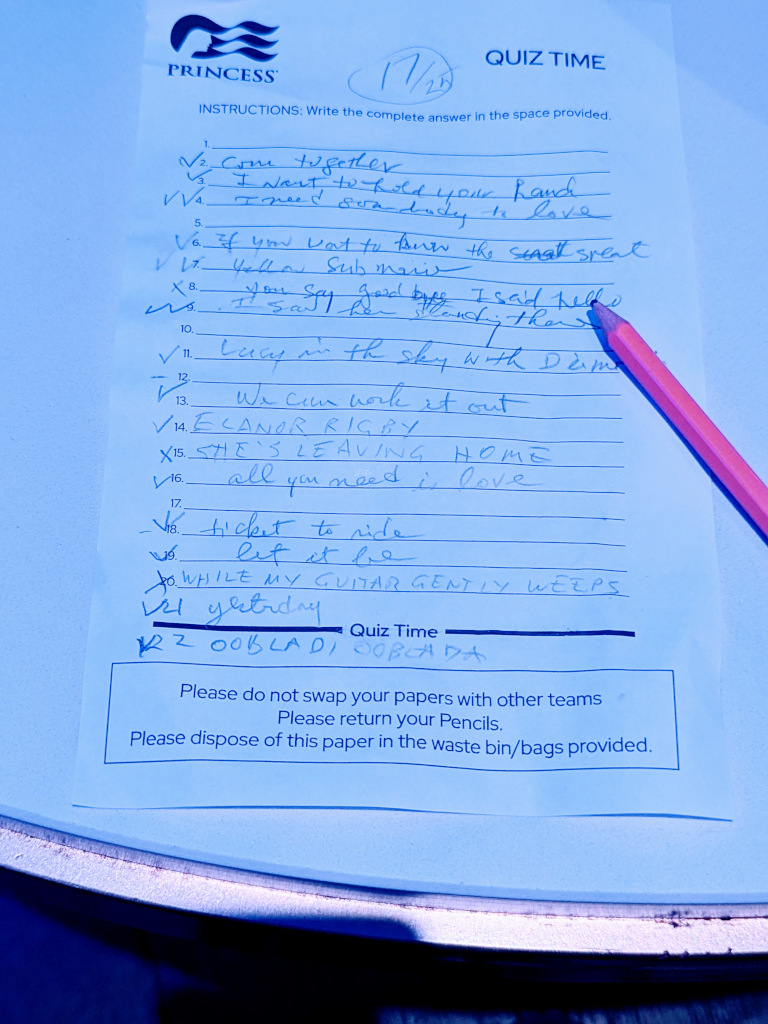 PRINCESS
QUIZ TIME
17/25
INSTRUCTIONS: Write the complete answer in the space provided.
1.
2. Com together
3. I want to hold your hand
4. I need somebody to love
5.
6. if you want to know the sreat
7. Yellow Submarie
8. You say good bye I said hello
9. I saw her standing there
10.
11. Lucy in the sky with
12.
13. We can work it out
14. ELANOR RIGBY
15. SHE'S LEAVING HOME
16. all you need is love
17.
18. ticket to ride
19. let it be
20. WHILE MY GUITAR GENTLY WEEPS
21 yesterday
Quiz Time
22 OOBLADI OOBLADA
Please do not swap your papers with other teams
Please return your Pencils.
Please dispose of this paper in the waste bin/bags provided.